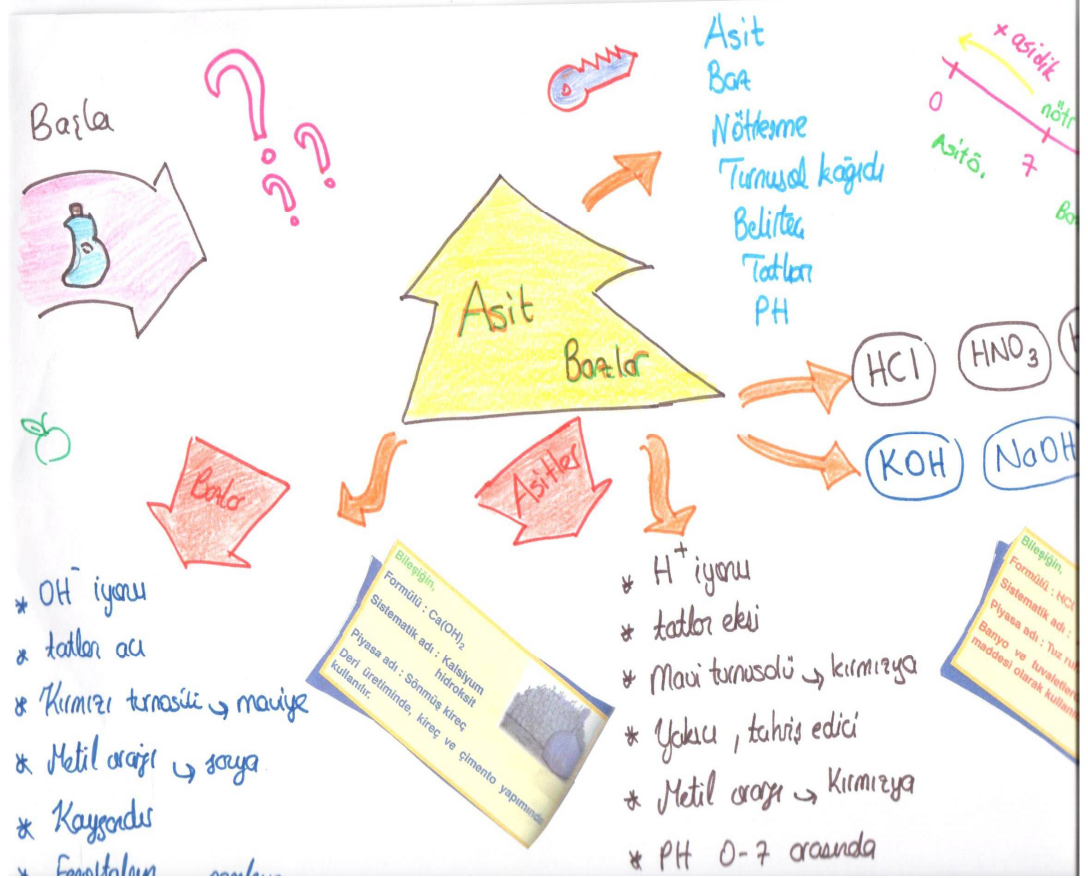 Başla
Asit
Baz
Nötrleşme
Turnusol kağıdı
Belirteç
Tatları
PH
asidik
0
nötr
7
Asit Bazlar
HCl
HNO₃
KOH
NaOH
Bazlar
* OH⁻ iyonu
* tatları acı
* Kırmızı turnusolü ↪ maviye
* Metil orajı ↪ sarıya
* Kaygandır
Bileşiğin,
Formülü : Ca(OH)₂
Sistematik adı : Kalsiyum hidroksit
Piyasa adı : Sönmüş kireç
Deri üretiminde, kireç ve çimento yapımında
kullanılır.
Asitler
* H⁺ iyonu
* tatları ekşi
* Mavi turnusolü ↪ kırmızıya
* Yakıcı , tahriş edici
* Metil orajı ↪ Kırmızıya
* PH 0-7 arasında
Bileşiğin,
Formülü : HCl
Sistematik adı :
Piyasa adı : Tuz
Banyo ve
maddesi olarak